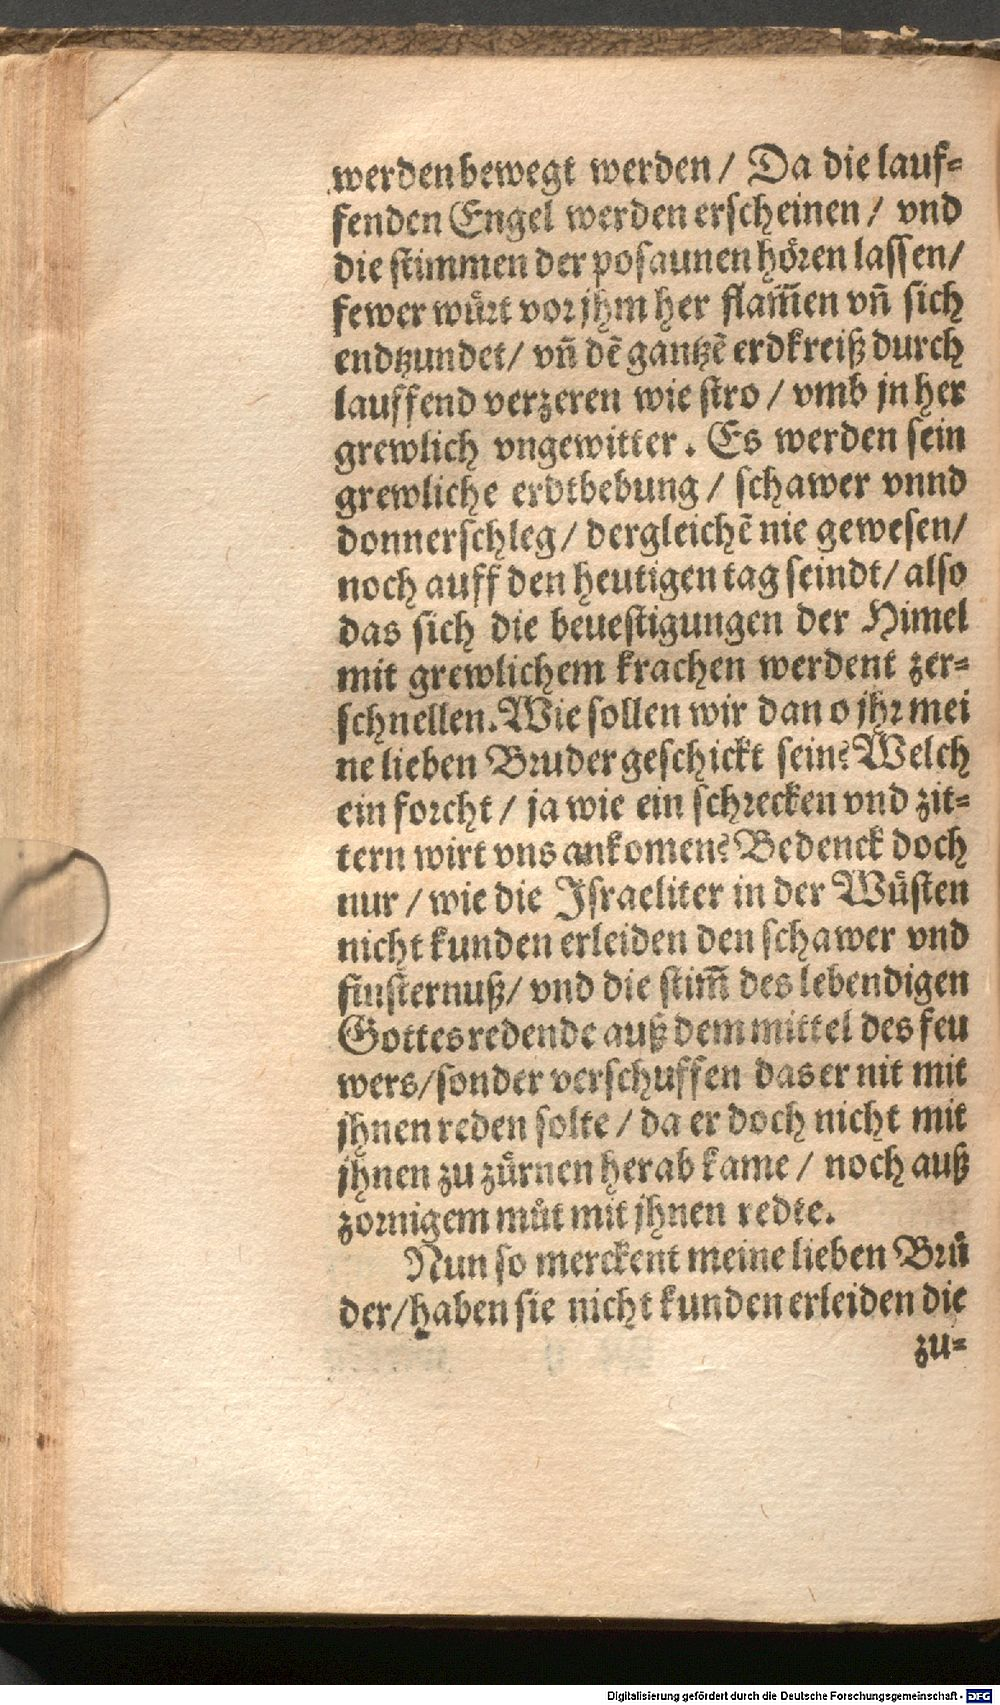 werden bewegt werden / Da die lauf⸗
fenden Engel werden erscheinen / vnd
die stimmen der posaunen hören lassen /
fewer würt vor jhm her flam̃en vñ sich
endtzundet / vñ dẽ gantzẽ erdkreiß durch
lauffend verzeren wie stro / vmb jn her
grewlich vngewitter. Es werden sein
grewliche erdtbebung / schawer vnnd
donnerschleg / dergleichẽ nie gewesen /
noch auff den heutigen tag seindt / also
das sich die beuestigungen der Himel
mit grewlichem krachen werdent zer⸗
schnellen. Wie sollen wir dan o jhr mei
ne lieben Bruder geschickt sein? Welch
ein forcht / ja wie ein schrecken vnd zit⸗
tern wirt vns ankomen? Bedenck doch
nur / wie die Israeliter in der Wüsten
nicht kunden erleiden den schawer vnd
finsternuß / vnd die stim̃ des lebendigen
Gottes redende auß dem mittel des feu
wers / sonder verschuffen das er nit mit
jhnen reden solte / da er doch nicht mit
jhnen zu zürnen herab kame / noch auß
zornigem müt mit jhnen redte.
Nun so merckent meine lieben Brü
der / haben sie nicht kunden erleiden die
zu⸗
Digitalisierung gefördert durch die Deutsche Forschungsgemeinschaft - DFG